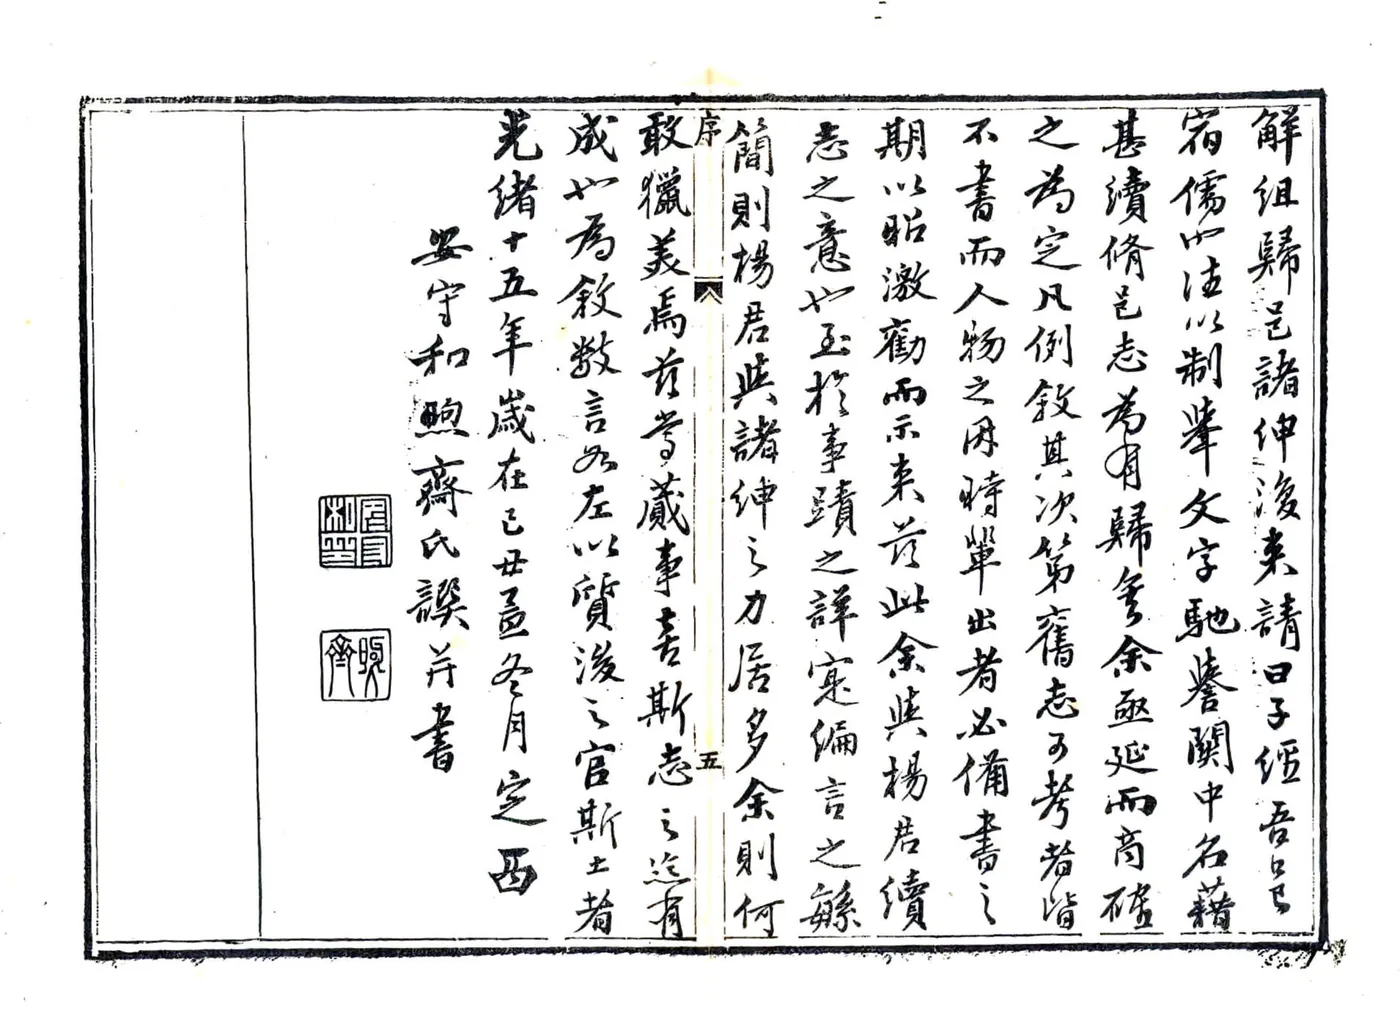 解組歸邑諸紳復来請曰子經吾邑
宿儒也往以制舉文字馳譽關中名藉
甚續脩邑志為有歸矣余亟延而商確
之為定凡例敘其次第舊志可考者皆
不書而人物之因時輩出者必備書之
期以昭激勸而示来茲此余與楊君續
志之意也至於事蹟之詳寔編言之緐
簡則楊君與諸紳之力居多余則何
序
五
敢獵美焉茲當蕆事喜斯志之迄有
成也為敘數言如左以質後之官斯土者
光緒十五年歲在己丑孟冬月定西
安守和煦齋氏譔并書
煦齋